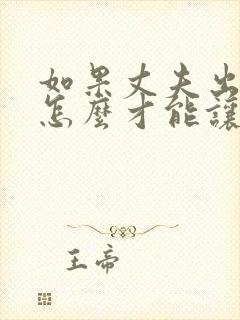 如果丈夫出
怎麼才能讓
王帝